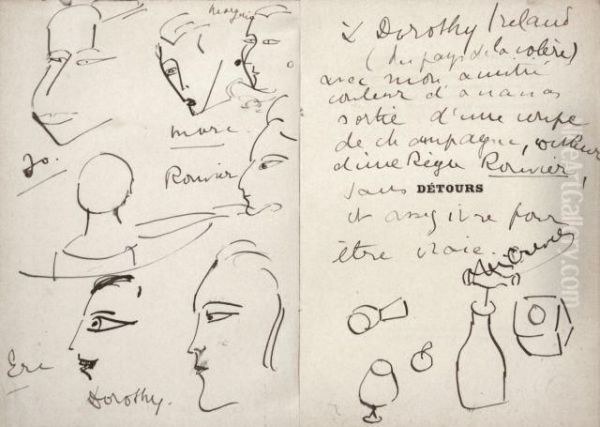 Jo.
marc
Rouvier
Eri
Dorothy.
à Dorothy Ireland
(du pays de la colère)
avec mon amitié
couleur d'ananas
sortie d'une coupe
de champagne,
d'une Rouvier,
sans DÉTOURS
et assez ivre pour
être vraie.